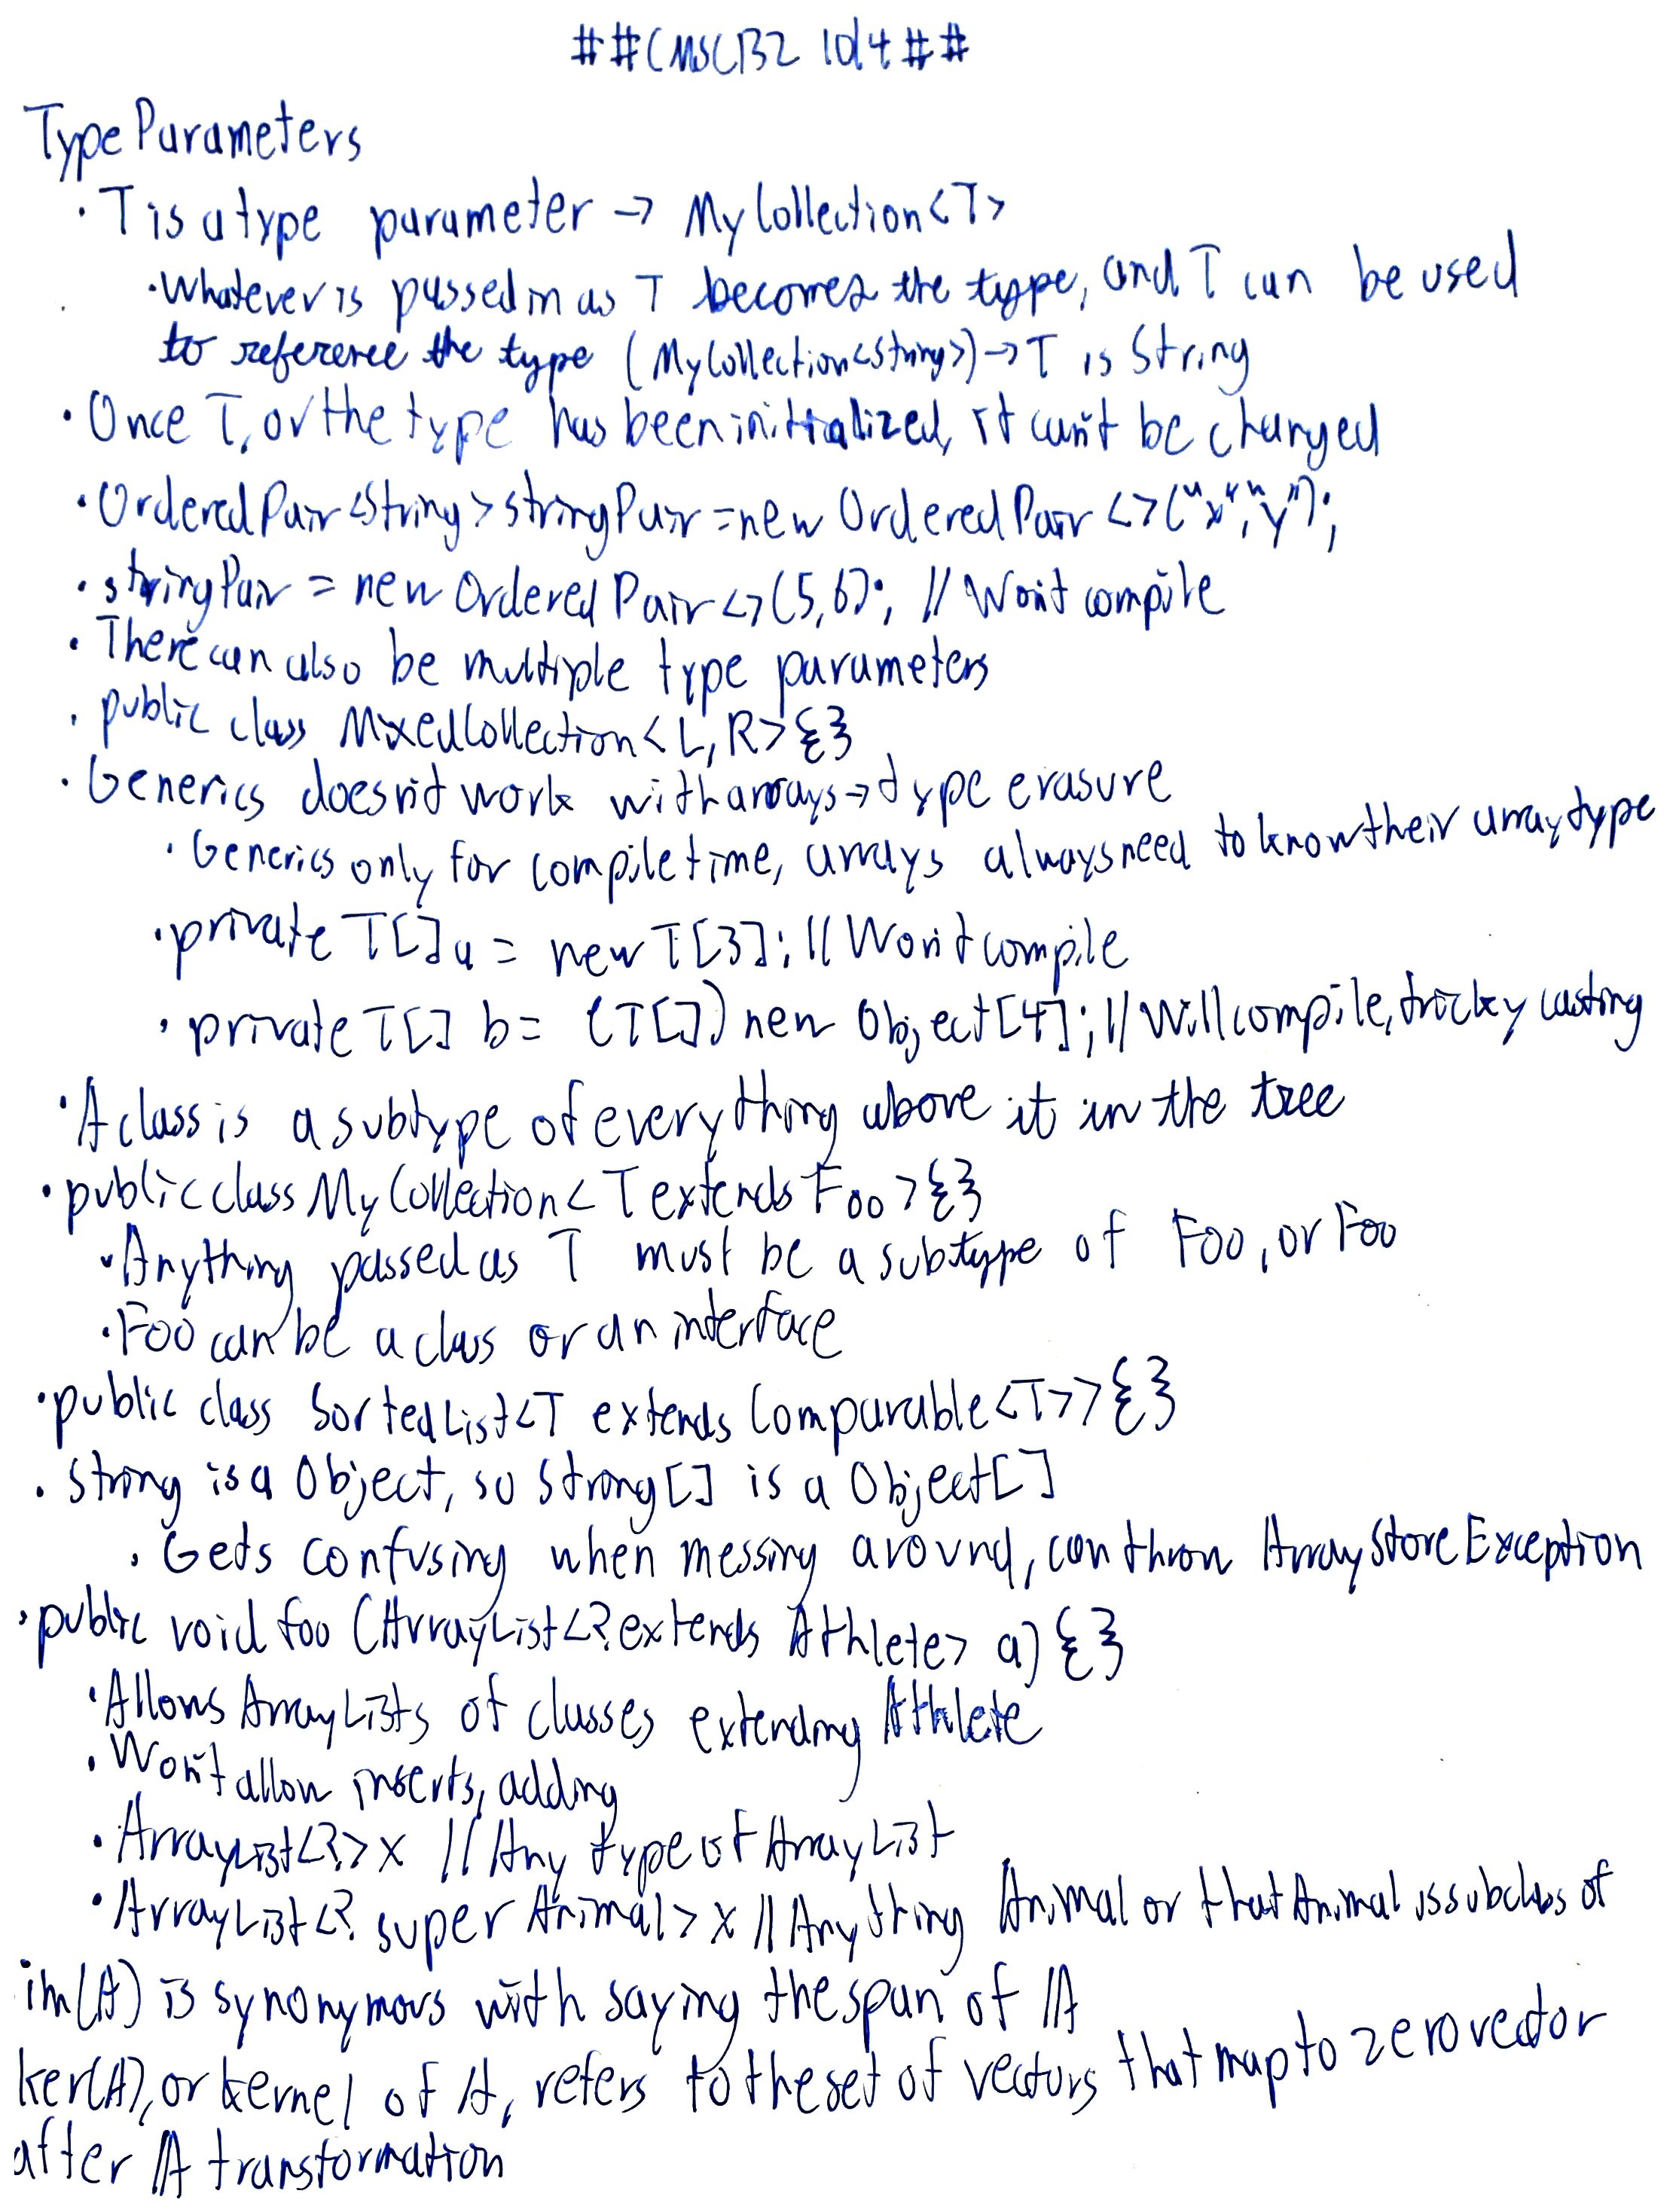 ##CMSC132 10/4##
Type Parameters
· T is a type parameter → MyCollection<T>
· Whatever is passed in as T becomes the type, and T can be used
to reference the type (MyCollection<String>) → T is String
· Once T, or the type has been initialized, it can't be changed
· OrderedPair<String> stringPair = new OrderedPair<>("x","y");
· stringPair = new OrderedPair<>(5,6); // Won't compile
· There can also be multiple type parameters
· public class MixedCollection<L,R>{}
· Generics doesn't work with arrays → type erasure
· Generics only for compile time, arrays always need to know their array type
· private T[] a = new T[3]; // Won't compile
· private T[] b = (T[]) new Object[4]; // Will compile, tricky casting
· A class is a subtype of everything above it in the tree
· public class MyCollection<T extends Foo>{}
· Anything passed as T must be a subtype of Foo, or Foo
· Foo can be a class or an interface
· public class SortedList<T extends Comparable<T>>{}
· String is a Object, so String[] is a Object[]
· Gets confusing when messing around, can throw ArrayStoreException
· public void foo (ArrayList<? extends Athlete> a) {}
· Allows ArrayLists of classes extending Athlete
· Won't allow inserts, adding
· ArrayList<?> x // Any type of ArrayList
· ArrayList<? super Animal> x // Anything Animal or that Animal is subclass of
im(A) is synonymous with saying the span of A
ker(A), or kernel of A, refers to the set of vectors that map to zero vector
after A transformation